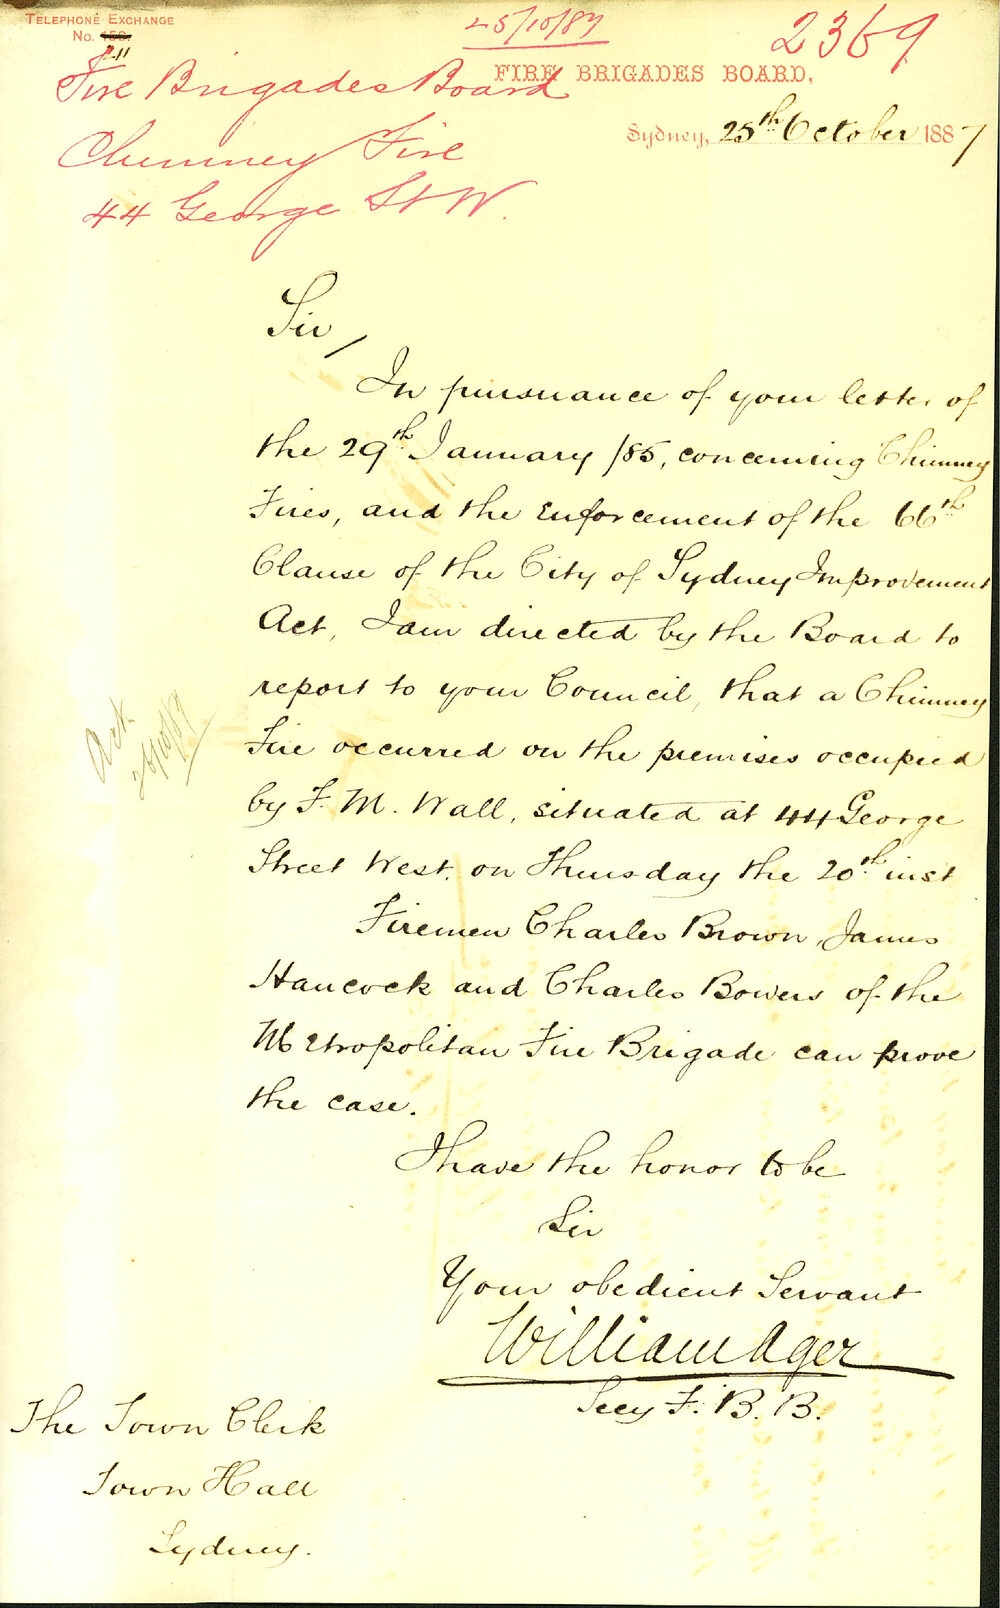 TELEPHONE EXCHANGE
No. 150.
211
25/10/87
2369
FIRE BRIGADES BOARD,
Fire Brigades Board
Chimney Fire
44 George St W.
Sydney, 25th October 1887
Sir,
In pursuance of your letter of
the 29th January /85, concerning Chimney
Fires, and the Enforcement of the 66th
Clause of the City of Sydney Improvement
Act, I am directed by the Board to
report to your Council, that a Chimney
Fire occurred on the premises occupied
by F. M. Wall, situated at 44 George
Street West, on Thursday the 20th inst
Firemen Charles Brown, James
Hancock and Charles Bowers of the
Metropolitan Fire Brigade can prove
the case.
Ack
26/10/87
I have the honor to be
Sir
Your obedient Servant
William Ager
Secy F. B. B.
The Town Clerk
Town Hall
Sydney.